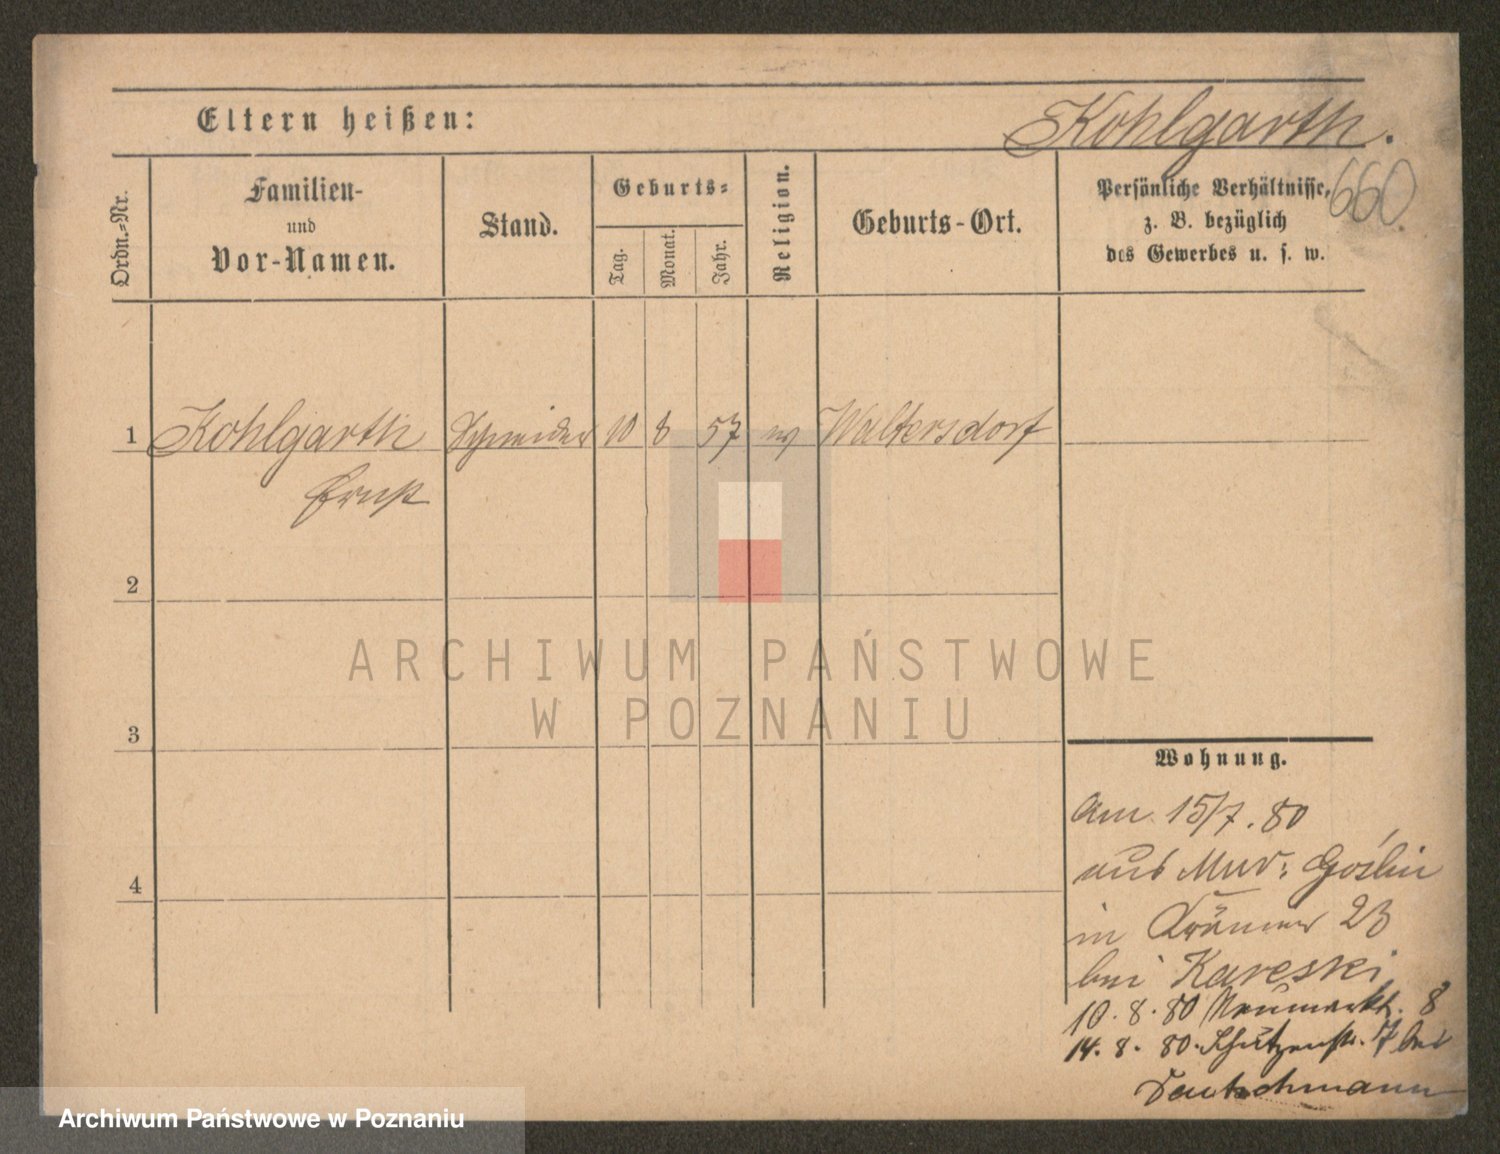 Eltern heißen:
Kohlgarth.
660.
Ordn.-Nr.
Familien-
und
Vor-Namen.
Stand.
Geburts-
Tag.
Monat.
Jahr.
Religion.
Geburts-Ort.
Persönliche Verhältnisse,
z. B. bezüglich
des Gewerbes u. s. w.
1 Kohlgarth Schneider 10 8 57 ev Waltersdorf
Ernst
2
3
4
Wohnung.
Am 15/7. 80
aus Mur: Goślin
in Krämer 23
bei Kareski
10. 8. 80 Neumarkt. 8
14. 8. 80. Schützenstr. 7 bei
Deutschmann
ARCHIWUM PAŃSTWOWE
W POZNANIU
Archiwum Państwowe w Poznaniu